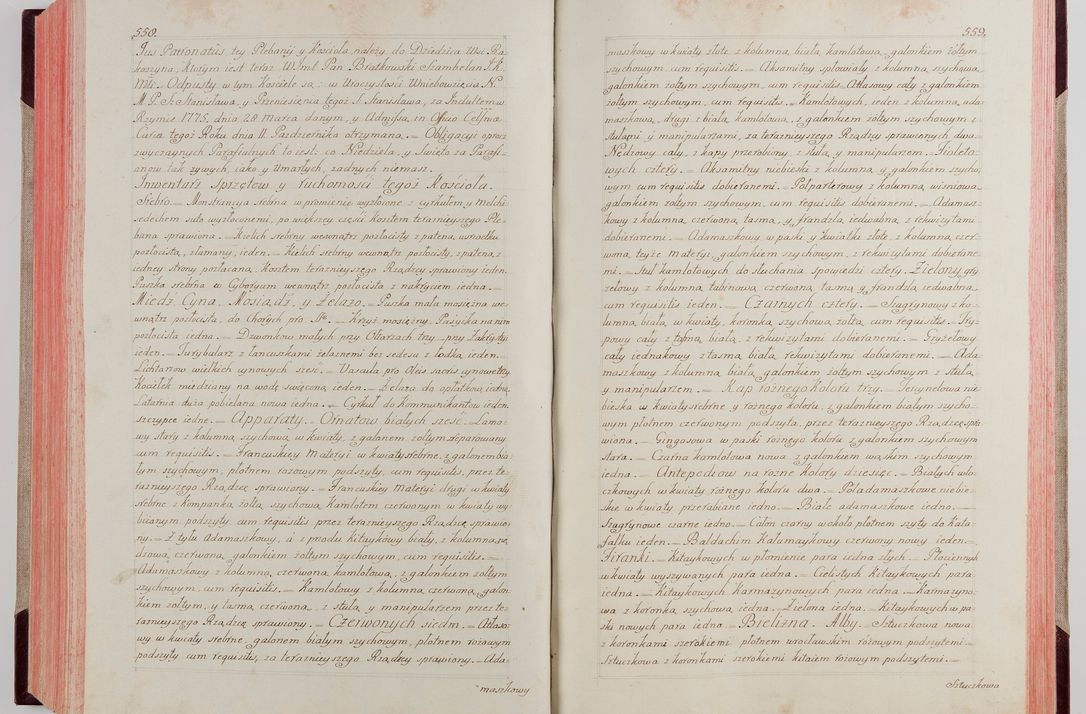 558.
Jus Patronatûs, tey Plebanij y Kościoła, należy do Dziedzica Wsi Ra-
koszyna, Ktorym iest teraz Wżny Pan Bratkowski Szambelan J. K.
Mci. Odpusty w tym Kościele są: w Uroczystości Wniebowzięcia N.
M. P. S. Stanisława, y Przeniesienia tegoż S. Stanisława, za Indultem w
Rzymie 1775. dnia 28 Marca danym, y Admissą in Offcio Celsma
Curia tegoż Roku dnia 11 Pazdziernika otrzymaną. Obligacyi oprocz
zwyczaynych Parafialnych to iest: co Niedziela, y Swięto za Parafi-
anow tak żywych, iako y Umarłych, żadnych niemasz.
Inwentarz Sprzętow y ruchomości tegoż Kościoła.
Srebro. Monstrancya srebrna w promienie wyzłocone z cyrkułem y Melchi-
sedechem suto wyzłoconemi, po większey części Kosztem teraznieyszego Ple-
bana sprawiona. Kielich srebrny wewnątrz pozłocisty z pateną, w srodku
pozłocistą, złamany, ieden. Kielich srebrny wewnątrz pozłocisty, z pateną, z
iedney strony pozłacaną, Kosztem teraznieyszego Rządzcy sprawiony ieden.
Puszka srebrna w Cyboryum wewnątrz pozłocista z nakryciem iedna.
Miedź, Cyna, Mosiądz, y Żelazo. Puszka mała mosiężna we-
wnątrz pozłocista, do Chorych pro
pozłocista iedna. Dzwonkow małych przy Ołtarzach trzy, przy Zakrystyi
ieden. Turybularz z łancuszkami żelaznemi bez sedesu z łodką ieden.
Lichtarzow wielkich cynowych sześć. Vascula pro Oleis sacris cynowe trzy.
Kociełek miedziany na wodę swięconą ieden. Żelaza do opłatkow iedne.
Latarnia duża pobielana nowa iedna. Cyrkuł do Kommunikantow ieden.
szczypce iedne. Apparaty. Ornatow białych sześć. Lamo-
wy stary z kolumną szychową w kwiaty, z galonem żołtym reparowany
cum requisitis. Francuskiey materyi w kwiaty srebrne, z galonem bia-
łym szychowym, płotnem rożowym podszyty, cum requisitis, przez te-
raznieyszego Rządzcę sprawiony. Francuskiey materyi drugi w kwiaty
srebrne z kompanką żołtą szychową, Kamlotem czerwonym w kwiaty wy-
biianym podszyty cum requisitis przez teraznieyszego Rządzcę sprawio-
ny. Z tyłu Adamaszkowy, a z przodu Kitaykowy biały, z kolumną nę-
dzową, czerwoną, galonkiem żołtym szychowym, cum requisitis.
Adamaszkowy z kolumną, czerwoną, kamlotową, z galonkiem żołtym
szychowym, cum requisitis. Kamlotowy z kolumną czerwoną, galon-
kiem żołtym, y tasmą czerwoną, z stułą y manipularzem przez te-
raznieyszego Rządzcę sprawiony. Czerwonych siedm. Atłaso-
wy w kwiaty srebrne, galonem białym szychowym, płotnem rożowym
podszyty cum requisitis, za teraznieyszego Rządzcy sprawiony. Ada-
maszkowy
559.
maszkowy w kwiaty złote z kolumną białą kamlotową, galonkiem żołtym
szychowym, cum requisitis. Aksamitny spłowiały z kolumną szychową,
galonkiem żołtym szychowym, cum requisitis. Atłasowy cały z galonkiem
żołtym szychowym, cum requisitis. Kamlotowych, ieden z kolumną ada-
maszkową, drugi z białą kamlotową, z galonkiem żołtym szychowym z
stułami y manipularzami, za teraznieyszego Rządzcy sprawionych, dwa.
Nędzowy cały, z kapy przerobiony, z stułą y manipularzem. Fioleto-
wych cztery. Aksamitny niebieski z kolumną, y galonkiem szycho-
wym cum requisitis dobieranemi. Połparterowy z kolumną, wisniową,
galonkiem żołtym szychowym, cum requisitis dobieranemi. Adamasz-
kowy z kolumną czerwoną tasmą, y frandzlą iedwabną, z rekwizytami
dobieranemi. Adamaszkowy w paski y kwiatki złote, z kolumną czer-
woną, teyże materyi, galonkiem szychowym, z rekwizytami dobierane-
mi. Stuł kamlotowych do słuchania spowiedzi cztery. Zielony gry-
zetowy z kolumną tabinową, czerwoną, tasmą y frandzlą iedwabną,
cum requisitis ieden. Czarnych cztery. Szagrynowy z ko-
lumną białą w kwiaty, koronką szychową żołtą cum requisitis. Try-
powy cały z tasmą białą, z rekwizytami dobieranemi. Gryzetowy
cały iednakowy z tasmą białą rekwizytami dobieranemi. Ada-
maszkowy z kolumną białą galonkiem żołtym szychowym z stułą,
y manipularzem. Kap rożnego Koloru trzy. Tercynelowa nie-
bieska w kwiaty srebrne y rożnego koloru, z galonkiem białym szycho-
wym płotnem czerwonym podszyta, przez teraznieyszego Rządzcę spra-
wiona. Gingasowa w paski rożnego koloru z galonkiem szychowym
stara. Czarna kamlotowa nowa z galonkiem wąskim szychowym
iedna. Antepedjow na rożne Kolory dziesięc. Białych wło-
czkowych w kwiaty rożnego koloru dwa. Poładamaszkowe niebie-
skie w kwiaty przerabiane iedno. Białe adamaszkowe iedno.
Szagrynowe czarne iedno. Całun czarny w około płotnem szyty do kata-
falku ieden. Baldachim Kałamaykowy czerwony nowy ieden.
Firanki. Kitaykowych w płomienie para iedna złych. Płociennych
w kwiaty wyszywanych para iedna. Cielistych Kitaykowych para
iedna. Kitaykowych Karmazynowych para iedna. Karmazyno-
wa z koronką szychową iedna. Zielona iedna. Kitaykowych w pa-
ski nowych para iedna. Bielizna. Alby. Sztuczkowa nowa
z koronkami szerokiemi płotnem wrocławskim rożowym podszytemi.
Sztuczkowa z koronkami szerokiemi kitaiem rożowym podszytemi.
Sztuczkowa